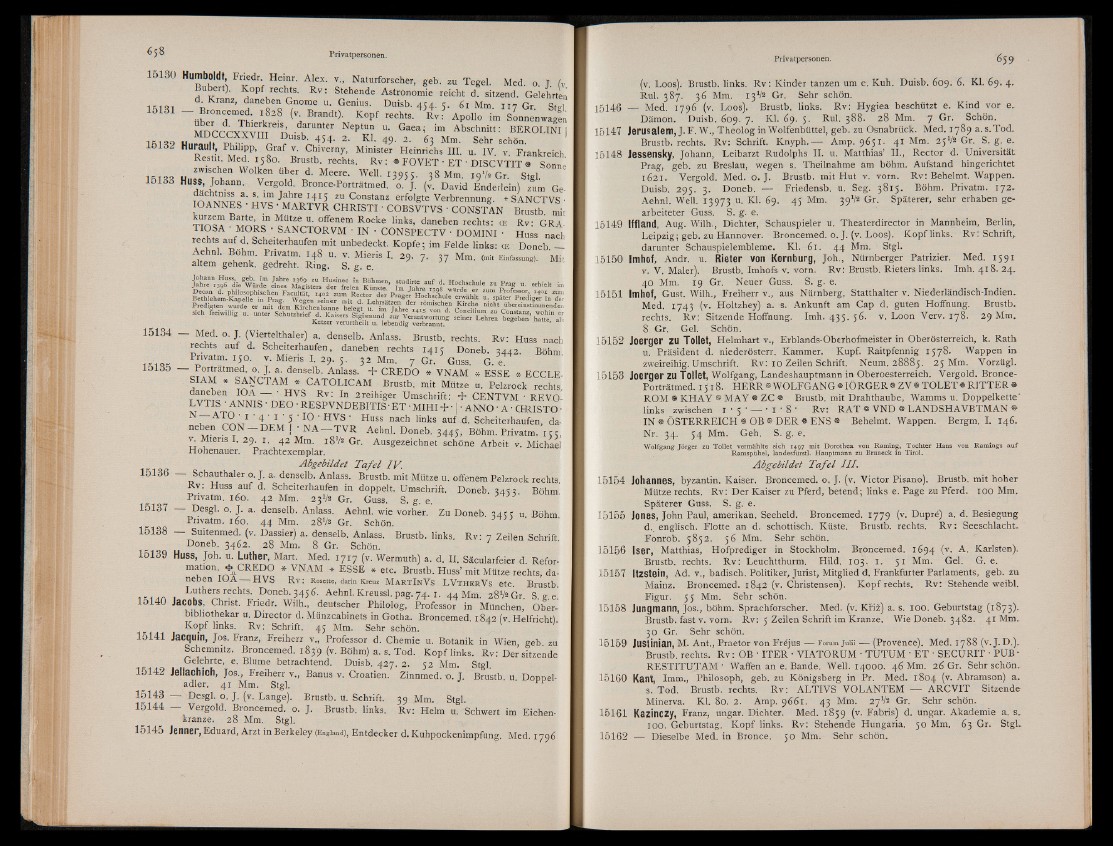 658
Privatpersonen.
15130 Humboldt, Friedr. Heinr. Alex. v., Naturforscher, geb. zu Tegel. Med. o. J. (v.
Bubert). Kopf rechts. Rv: Stehende Astronomie reicht d. sitzend. Gelehrten
d. Kranz, daneben Gnome u. Genius. Duisb. 454. 5. 61 Mm. 117 Gr. Stgl.
15131 — Broncemed. 1828 (v. Brandt). Kopf rechts. Rv: Apollo im Sonnenwagen
über d. Thierkreis, darunter Neptun u. Gaea; im Abschnitt: BEROLINI |
MDCCCXXVIII Duisb. 454. 2. Kl. 49. 2. 63 Mm. Sehr schön.
15132 Hurault, Philipp, Graf v. Chiverny, Minister Heinrichs III. u. IV. v. Frankreich.
Restit. Med. 1580. Brustb. rechts. Rv: ⊛ FOVET · ET · DISCVTIT ⊛ Sonne
zwischen Wolken über d. Meere. Well. 13955. 38 Mm. 19½ Gr. Stgl.
15133 Huss, Johann. Vergold. Bronce-Porträtmed. o. J. (v. David Enderlein) zum Ge-
dächtniss a. s. im Jahre 1415 zu Constanz erfolgte Verbrennung. + SANCTVS ·
IOANNES · HVS · MARTVR CHRISTI · COBSVTVS · CONSTAN Brustb. mit
kurzem Barte, in Mütze u. offenem Rocke links, daneben rechts: Œ Rv: GRA·
TIOSA · MORS · SANCTORVM · IN · CONSPECTV · DOMINI · Huss nach
rechts auf d. Scheiterhaufen mit unbedeckt. Kopfe; im Felde links: Œ Doneb. —
Aehnl. Böhm. Privatm. 148 u. v. Mieris I. 29. 7. 37 Mm. (mit Einfassung). Mit
altem gehenk. gedreht. Ring. S. g. e.
Johann Huss, geb. im Jahre 1369 zu Husinec in Böhmen, studirte auf d. Hochschule zu Prag u. erhielt im
Jahre 1396 die Würde eines Magisters der freien Künste. Im Jahre 1398 wurde er zum Professor, 1401 zum
Decan d. philosophischen Facultät, 1402 zum Rector der Prager Hochschule erwählt u. später Prediger in der
Bethlehem-Kapelle in Prag. Wegen seiner mit d. Lehrsätzen der römischen Kirche nicht übereinstimmenden
Predigten wurde er mit dem Kirchenbanne belegt u. im Jahre 1415 von d. Concilium zu Constanz, wohin er
sich freiwillig u. unter Schutzbrief d. Kaisers Sigismund zur Verantwortung seiner Lehren begeben hatte, als
Ketzer verurtheilt u. lebendig verbrannt.
15134 — Med. o. J. (Viertelthaler) a. denselb. Anlass. Brustb. rechts. Rv: Huss nach
rechts auf d. Scheiterhaufen, daneben rechts 1415 Doneb. 3442. Böhm.
Privatm. 150. v. Mieris I. 29. 5. 32 Mm. 7 Gr. Guss. G. e.
15135 — Porträtmed. o. J. a. denselb. Anlass. + CREDO * VNAM * ESSE * ECCLE-
SIAM * SANCTAM * CATOLICAM Brustb. mit Mütze u. Pelzrock rechts,
daneben IOÄ — · HVS Rv: In 2reihiger Umschrift: + CENTVM · REVO-
LVTIS · ANNIS · DEO · RESPVNDEBITIS · ET · MIHI + · | · ANNO · A · CHRISTO ·
N — ATO · 1 · 4 · 1 · 5 · IO · HVS · Huss nach links auf d. Scheiterhaufen, da-
neben CON — DEM | · NA — TVR Aehnl. Doneb. 3445. Böhm. Privatm. 155.
v. Mieris I. 29. 1. 42 Mm. 18½ Gr. Ausgezeichnet schöne Arbeit v. Michael
Hohenauer. Prachtexemplar.
Abgebildet Tafel IV.
15136 — Schauthaler o. J. a. denselb. Anlass. Brustb. mit Mütze u. offenem Pelzrock rechts.
Rv: Huss auf d. Scheiterhaufen in doppelt. Umschrift. Doneb. 3453. Böhm.
Privatm. 160. 42 Mm. 23½ Gr. Guss. S. g. e.
15137 — Desgl. o. J. a. denselb. Anlass. Aehnl. wie vorher. Zu Doneb. 3455 u. Böhm.
Privatm. 160. 44 Mm. 28½ Gr. Schön.
15138 — Suitenmed. (v. Dassier) a. denselb. Anlass. Brustb. links. Rv: 7 Zeilen Schrift.
Doneb. 3462. 28 Mm. 8 Gr. Schön.
15139 Huss, Joh. u. Luther, Mart. Med. 1717 (v. Wermuth) a. d. II. Säcularfeier d. Refor-
mation. ✤ CREDO * VNAM * ESSE * etc. Brustb. Huss' mit Mütze rechts, da-
neben IOÄ — HVS Rv: Rosette, darin Kreuz MARTINVS LVTHERVS etc. Brustb.
Luthers rechts. Doneb. 3456. Aehnl. Kreussl. pag. 74. 1. 44 Mm. 28½ Gr. S. g. e.
15140 Jacobs, Christ. Friedr. Wilh., deutscher Philolog, Professor in München, Ober-
bibliothekar u. Director d. Münzcabinets in Gotha. Broncemed. 1842 (v. Helfricht).
Kopf links. Rv: Schrift. 45 Mm. Sehr schön.
15141 Jacquin, Jos. Franz, Freiherr v., Professor d. Chemie u. Botanik in Wien, geb. zu
Schemnitz. Broncemed. 1839 (v. Böhm) a. s. Tod. Kopf links. Rv: Der sitzende
Gelehrte, e. Blume betrachtend. Duisb. 427. 2. 52 Mm. Stgl.
15142 Jellachich, Jos., Freiherr v., Banus v. Croatien. Zinnmed. o. J. Brustb. u. Doppel-
adler. 41 Mm. Stgl.
15143 — Desgl. o. J. (v. Lange). Brustb. u. Schrift. 39 Mm. Stgl.
15144 — Vergold. Broncemed. o. J. Brustb. links. Rv: Helm u. Schwert im Eichen-
kranze. 28 Mm. Stgl.
15145 Jenner, Eduard, Arzt in Berkeley (England), Entdecker d. Kuhpockenimpfung. Med. 1796
Privatpersonen.
659
(v. Loos). Brustb. links. Rv: Kinder tanzen um e. Kuh. Duisb. 609. 6. Kl. 69. 4.
Rul. 387. 36 Mm. 13½ Gr. Sehr schön.
15146 — Med. 1796 (v. Loos). Brustb. links. Rv: Hygiea beschützt e. Kind vor e.
Dämon. Duisb. 609. 7. Kl. 69. 5. Rul. 388. 28 Mm. 7 Gr. Schön.
15147 Jerusalem, J. F. W., Theolog in Wolfenbüttel, geb. zu Osnabrück. Med. 1789 a. s. Tod.
Brustb. rechts. Rv: Schrift. Knyph. — Amp. 9651. 41 Mm. 25½ Gr. S. g. e.
15148 Jessensky, Johann, Leibarzt Rudolphs II. u. Matthias' II., Rector d. Universität
Prag, geb. zu Breslau, wegen s. Theilnahme am böhm. Aufstand hingerichtet
1621. Vergold. Med. o. J. Brustb. mit Hut v. vorn. Rv: Behelmt. Wappen.
Duisb. 295. 3. Doneb. — Friedensb. u. Seg. 3815. Böhm. Privatm. 172.
Aehnl. Well. 13973 u. Kl. 69. 45 Mm. 39½ Gr. Späterer, sehr erhaben ge-
arbeiteter Guss. S. g. e.
15149 Iffland, Aug. Wilh., Dichter, Schauspieler u. Theaterdirector in Mannheim, Berlin,
Leipzig; geb. zu Hannover. Broncemed. o. J. (v. Loos). Kopf links. Rv: Schrift,
darunter Schauspielembleme. Kl. 61. 44 Mm. Stgl.
15150 Imhof, Andr. u. Rieter von Kornburg, Joh., Nürnberger Patrizier. Med. 1591
v. V. Maler). Brustb. Imhofs v. vorn. Rv: Brustb. Rieters links. Imh. 418. 24.
40 Mm. 19 Gr. Neuer Guss. S. g. e.
15151 Imhof, Gust. Wilh., Freiherr v., aus Nürnberg, Statthalter v. Niederländisch-Indien.
Med. 1743 (v. Holtzhey) a. s. Ankunft am Cap d. guten Hoffnung. Brustb.
rechts. Rv: Sitzende Hoffnung. Imh. 435. 56. v. Loon Verv. 178. 29 Mm.
8 Gr. Gel. Schön.
15152 Joerger zu Tollet, Helmhart v., Erblands-Oberhofmeister in Oberösterreich, k. Rath
u. Präsident d. niederösterr. Kammer. Kupf. Raitpfennig 1578. Wappen in
zweireihig. Umschrift. Rv: 10 Zeilen Schrift. Neum. 28885. 25 Mm. Vorzügl.
15153 Joerger zu Tollet, Wolfgang, Landeshauptmann in Oberoesterreich. Vergold. Bronce-
Porträtmed. 1518. HERR ⊛ WOLFGANG ⊛ IÖRGER ⊛ ZV ⊛ TOLET ⊛ RITTER ⊛
ROM ⊛ KHAY ⊛ MAY ⊛ ZC ⊛ Brustb. mit Drahthaube, Wamms u. Doppelkette
links zwischen 1 · 5 · — · 1 · 8 · Rv: RAT ⊛ VND ⊛ LANDSHAVBTMAN ⊛
IN ⊛ ÖSTERREICH ⊛ OB ⊛ DER ⊛ ENS ⊛ Behelmt. Wappen. Bergm. I. 146.
Nr. 34. 54 Mm. Geh. S. g. e.
Wolfgang Jörger zu Tollet vermählte sich 1497 mit Dorothea von Raming, Tochter Hans von Ramings auf
Ramspühel, landesfürstl. Hauptmann zu Bruneck in Tirol.
Abgebildet Tafel III.
15154 Johannes, byzantin. Kaiser. Broncemed. o. J. (v. Victor Pisano). Brustb. mit hoher
Mütze rechts. Rv: Der Kaiser zu Pferd, betend; links e. Page zu Pferd. 100 Mm.
Späterer Guss. S. g. e.
15155 Jones, John Paul, amerikan. Seeheld. Broncemed. 1779 (v. Dupré) a. d. Besiegung
d. englisch. Flotte an d. schottisch. Küste. Brustb. rechts. Rv: Seeschlacht.
Fonrob. 5852. 56 Mm. Sehr schön.
15156 Iser, Matthias, Hofprediger in Stockholm. Broncemed. 1694 (v. A. Karlsten).
Brustb. rechts. Rv: Leuchtthurm. Hild. 103. 1. 51 Mm. Gel. G. e.
15157 Itzstein, Ad. v., badisch. Politiker, Jurist, Mitglied d. Frankfurter Parlaments, geb. zu
Mainz. Broncemed. 1842 (v. Christensen). Kopf rechts. Rv: Stehende weibl.
Figur. 55 Mm. Sehr schön.
15158 Jungmann, Jos., böhm. Sprachforscher. Med. (v. Křiž) a. s. 100. Geburtstag (1873).
Brustb. fast v. vorn. Rv: 5 Zeilen Schrift im Kranze. Wie Doneb. 3482. 41 Mm.
30 Gr. Sehr schön.
15159 Justinian, M. Ant., Praetor von Fréjus — Forum Julii — (Provence). Med. 1788 (v. J. D.).
Brustb. rechts. Rv: OB · ITER · VIATORUM · TUTUM · ET · SECURIT · PUB ·
RESTITUTAM · Waffen an e. Bande. Well. 14000. 46 Mm. 26 Gr. Sehr schön.
15160 Kant, Imm., Philosoph, geb. zu Königsberg in Pr. Med. 1804 (v. Abramson) a.
s. Tod. Brustb. rechts. Rv: ALTIVS VOLANTEM — ARCVIT Sitzende
Minerva. Kl. 80. 2. Amp. 9661. 43 Mm. 27½ Gr. Sehr schön.
15161 Kazinczy, Franz, ungar. Dichter. Med. 1859 (v. Fabris) d. ungar. Akademie a. s.
100. Geburtstag. Kopf links. Rv: Stehende Hungaria. 50 Mm. 63 Gr. Stgl.
15162 — Dieselbe Med. in Bronce. 50 Mm. Sehr schön.